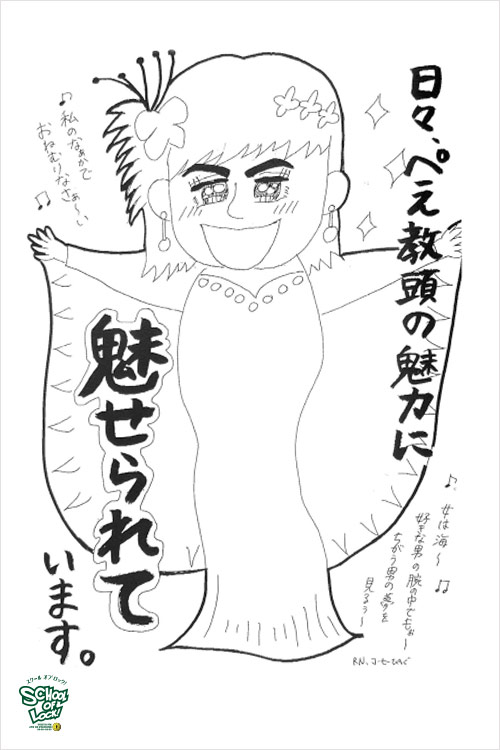 日々、ぺえ教頭の魅力に
魅せられて
います。
♪私のなぁかで
おねむりなさぁ〜い♫
♪女は海〜♫
好きな男の腕の中でもぉ〜
ちがう男の夢を
見るぅ〜
スクール オブ ロック!
SCHOOL
OF
LOCK!